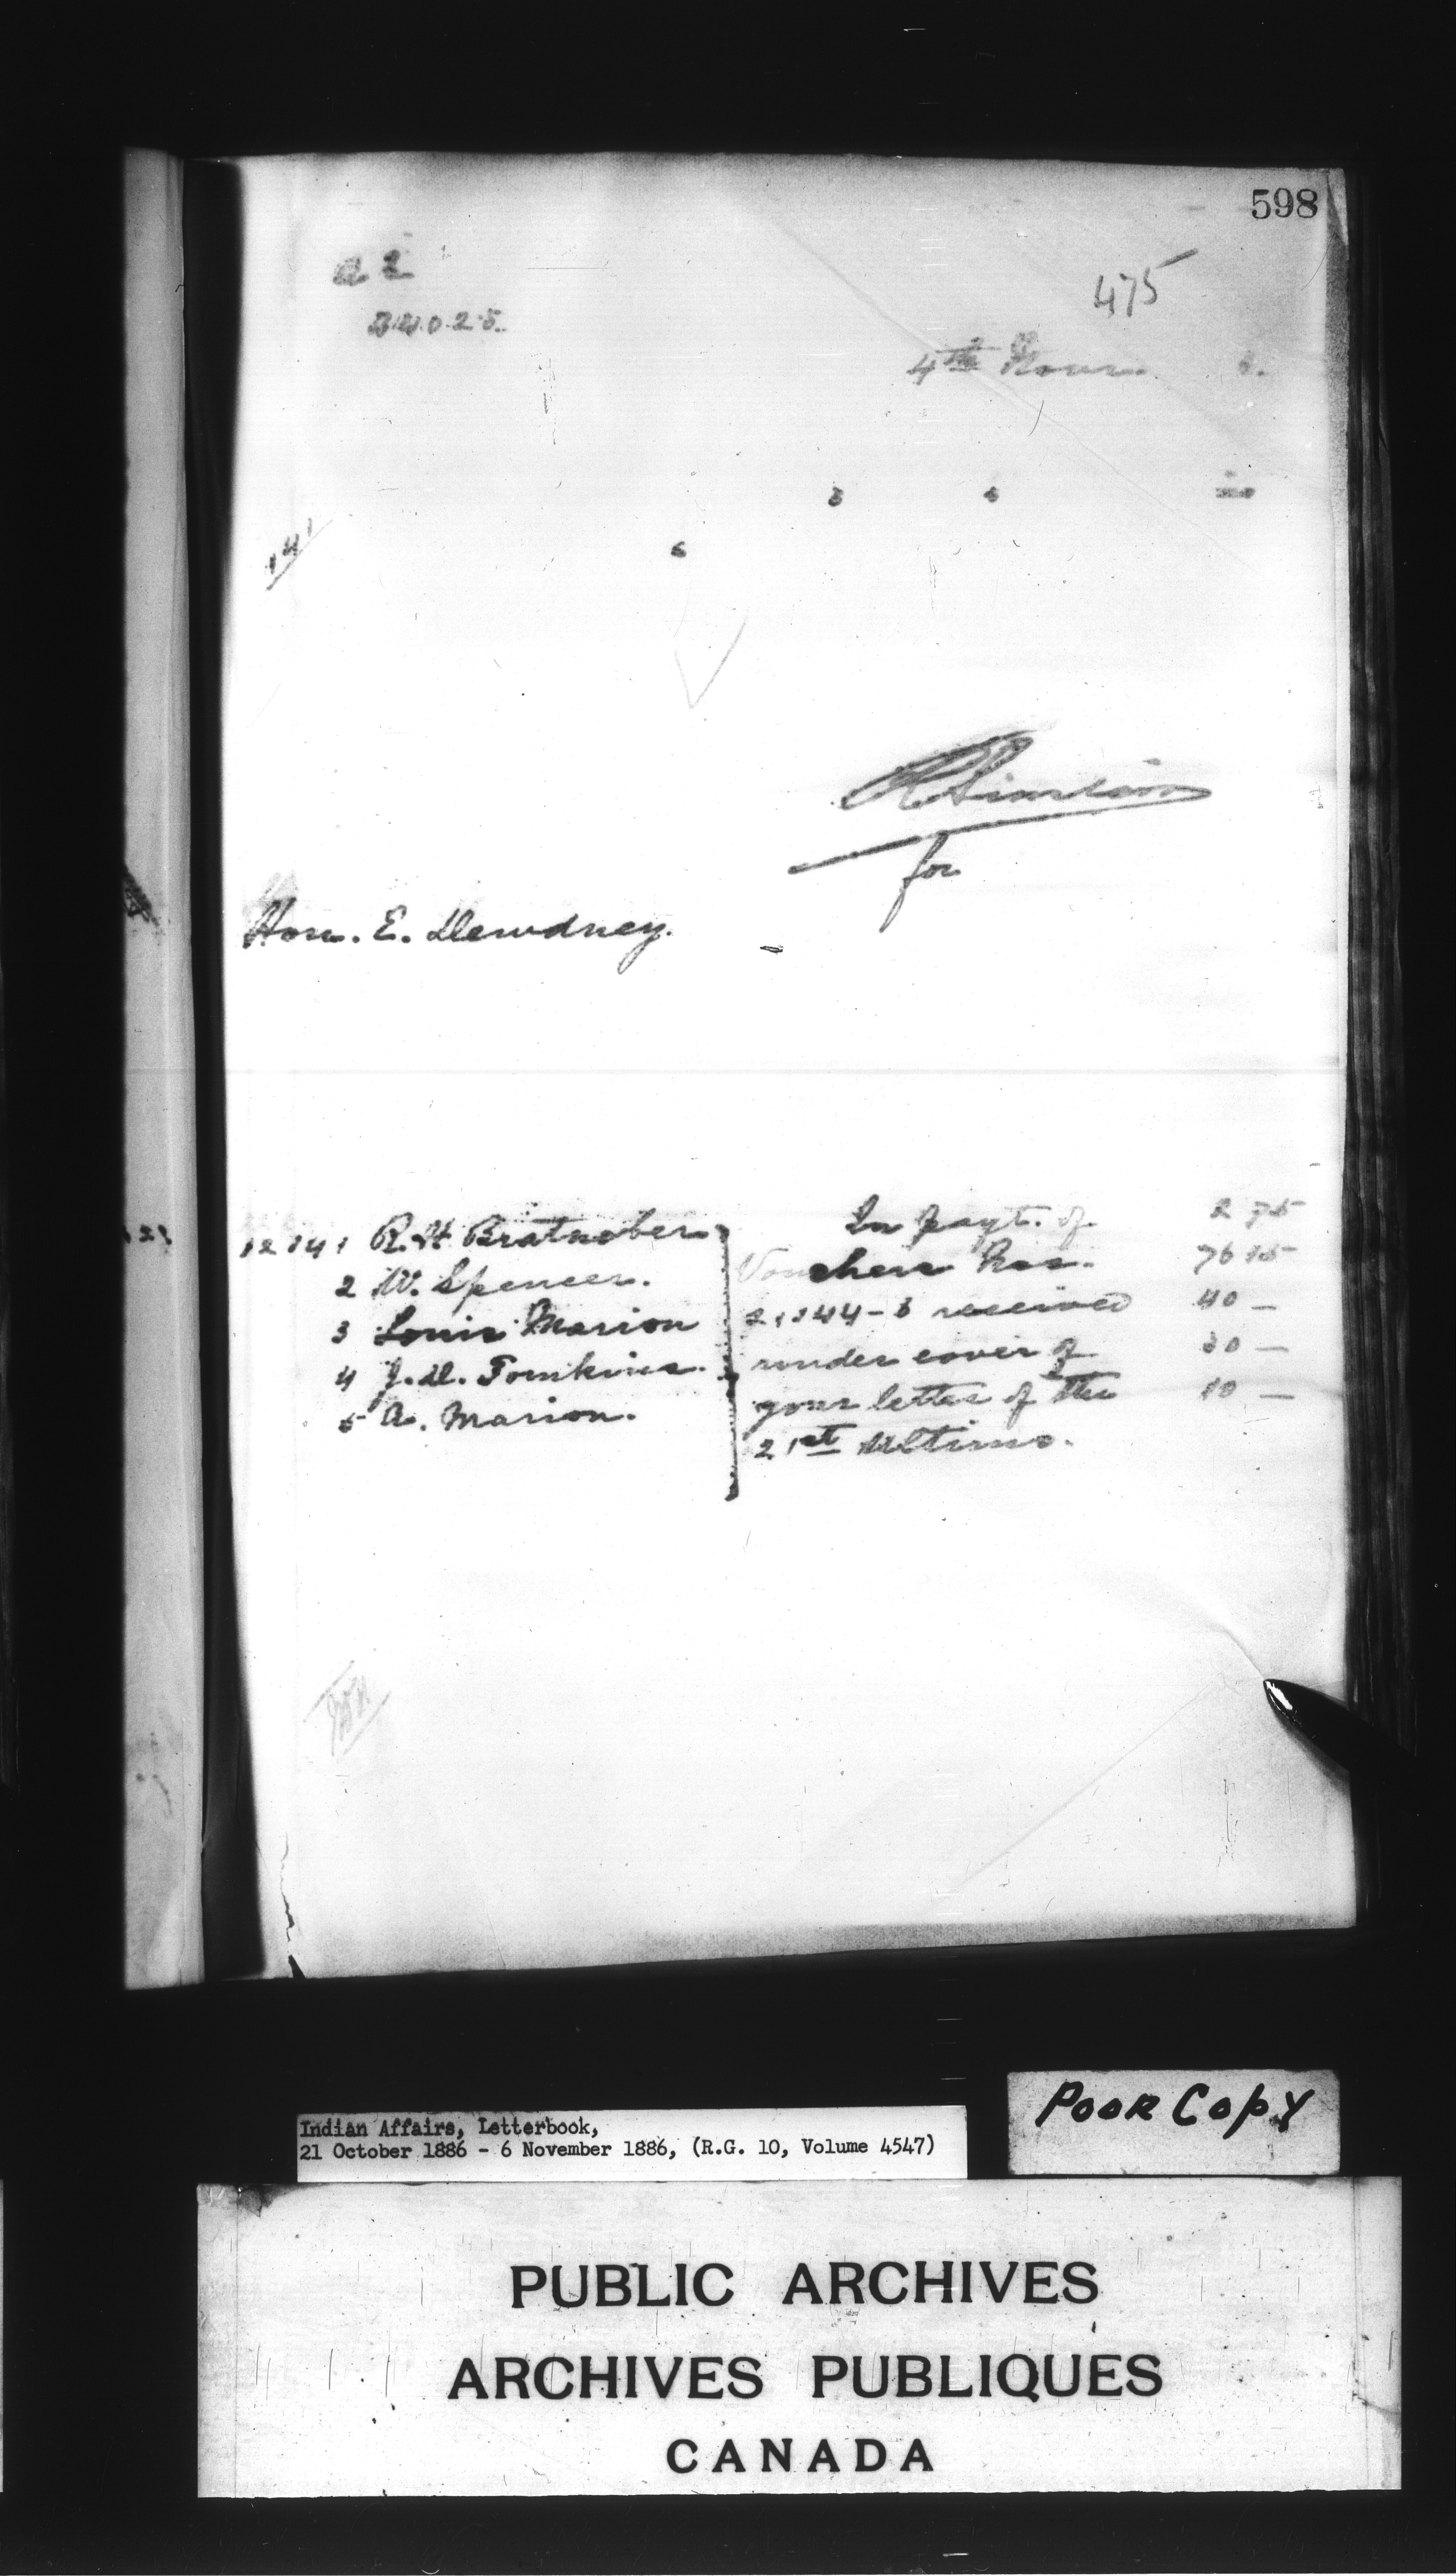 598
a 2
475
4th Novr. 6.
141
RSinclair
for
Hon. E. Dewdney.
12141 R. H. Bratnober In payt. of 2 75
2 W. Spencer. Vouchers Nos. 76 15
3 Louis Marion received 40 —
4 J. D. Tomkins. under cover of 30 —
5 A. Marion. your letter of the 10 —
21st Ultimo.
Indian Affairs, Letterbook,
21 October 1886 - 6 November 1886, (R.G. 10, Volume 4547)
POOR COPY
PUBLIC ARCHIVES
ARCHIVES PUBLIQUES
CANADA